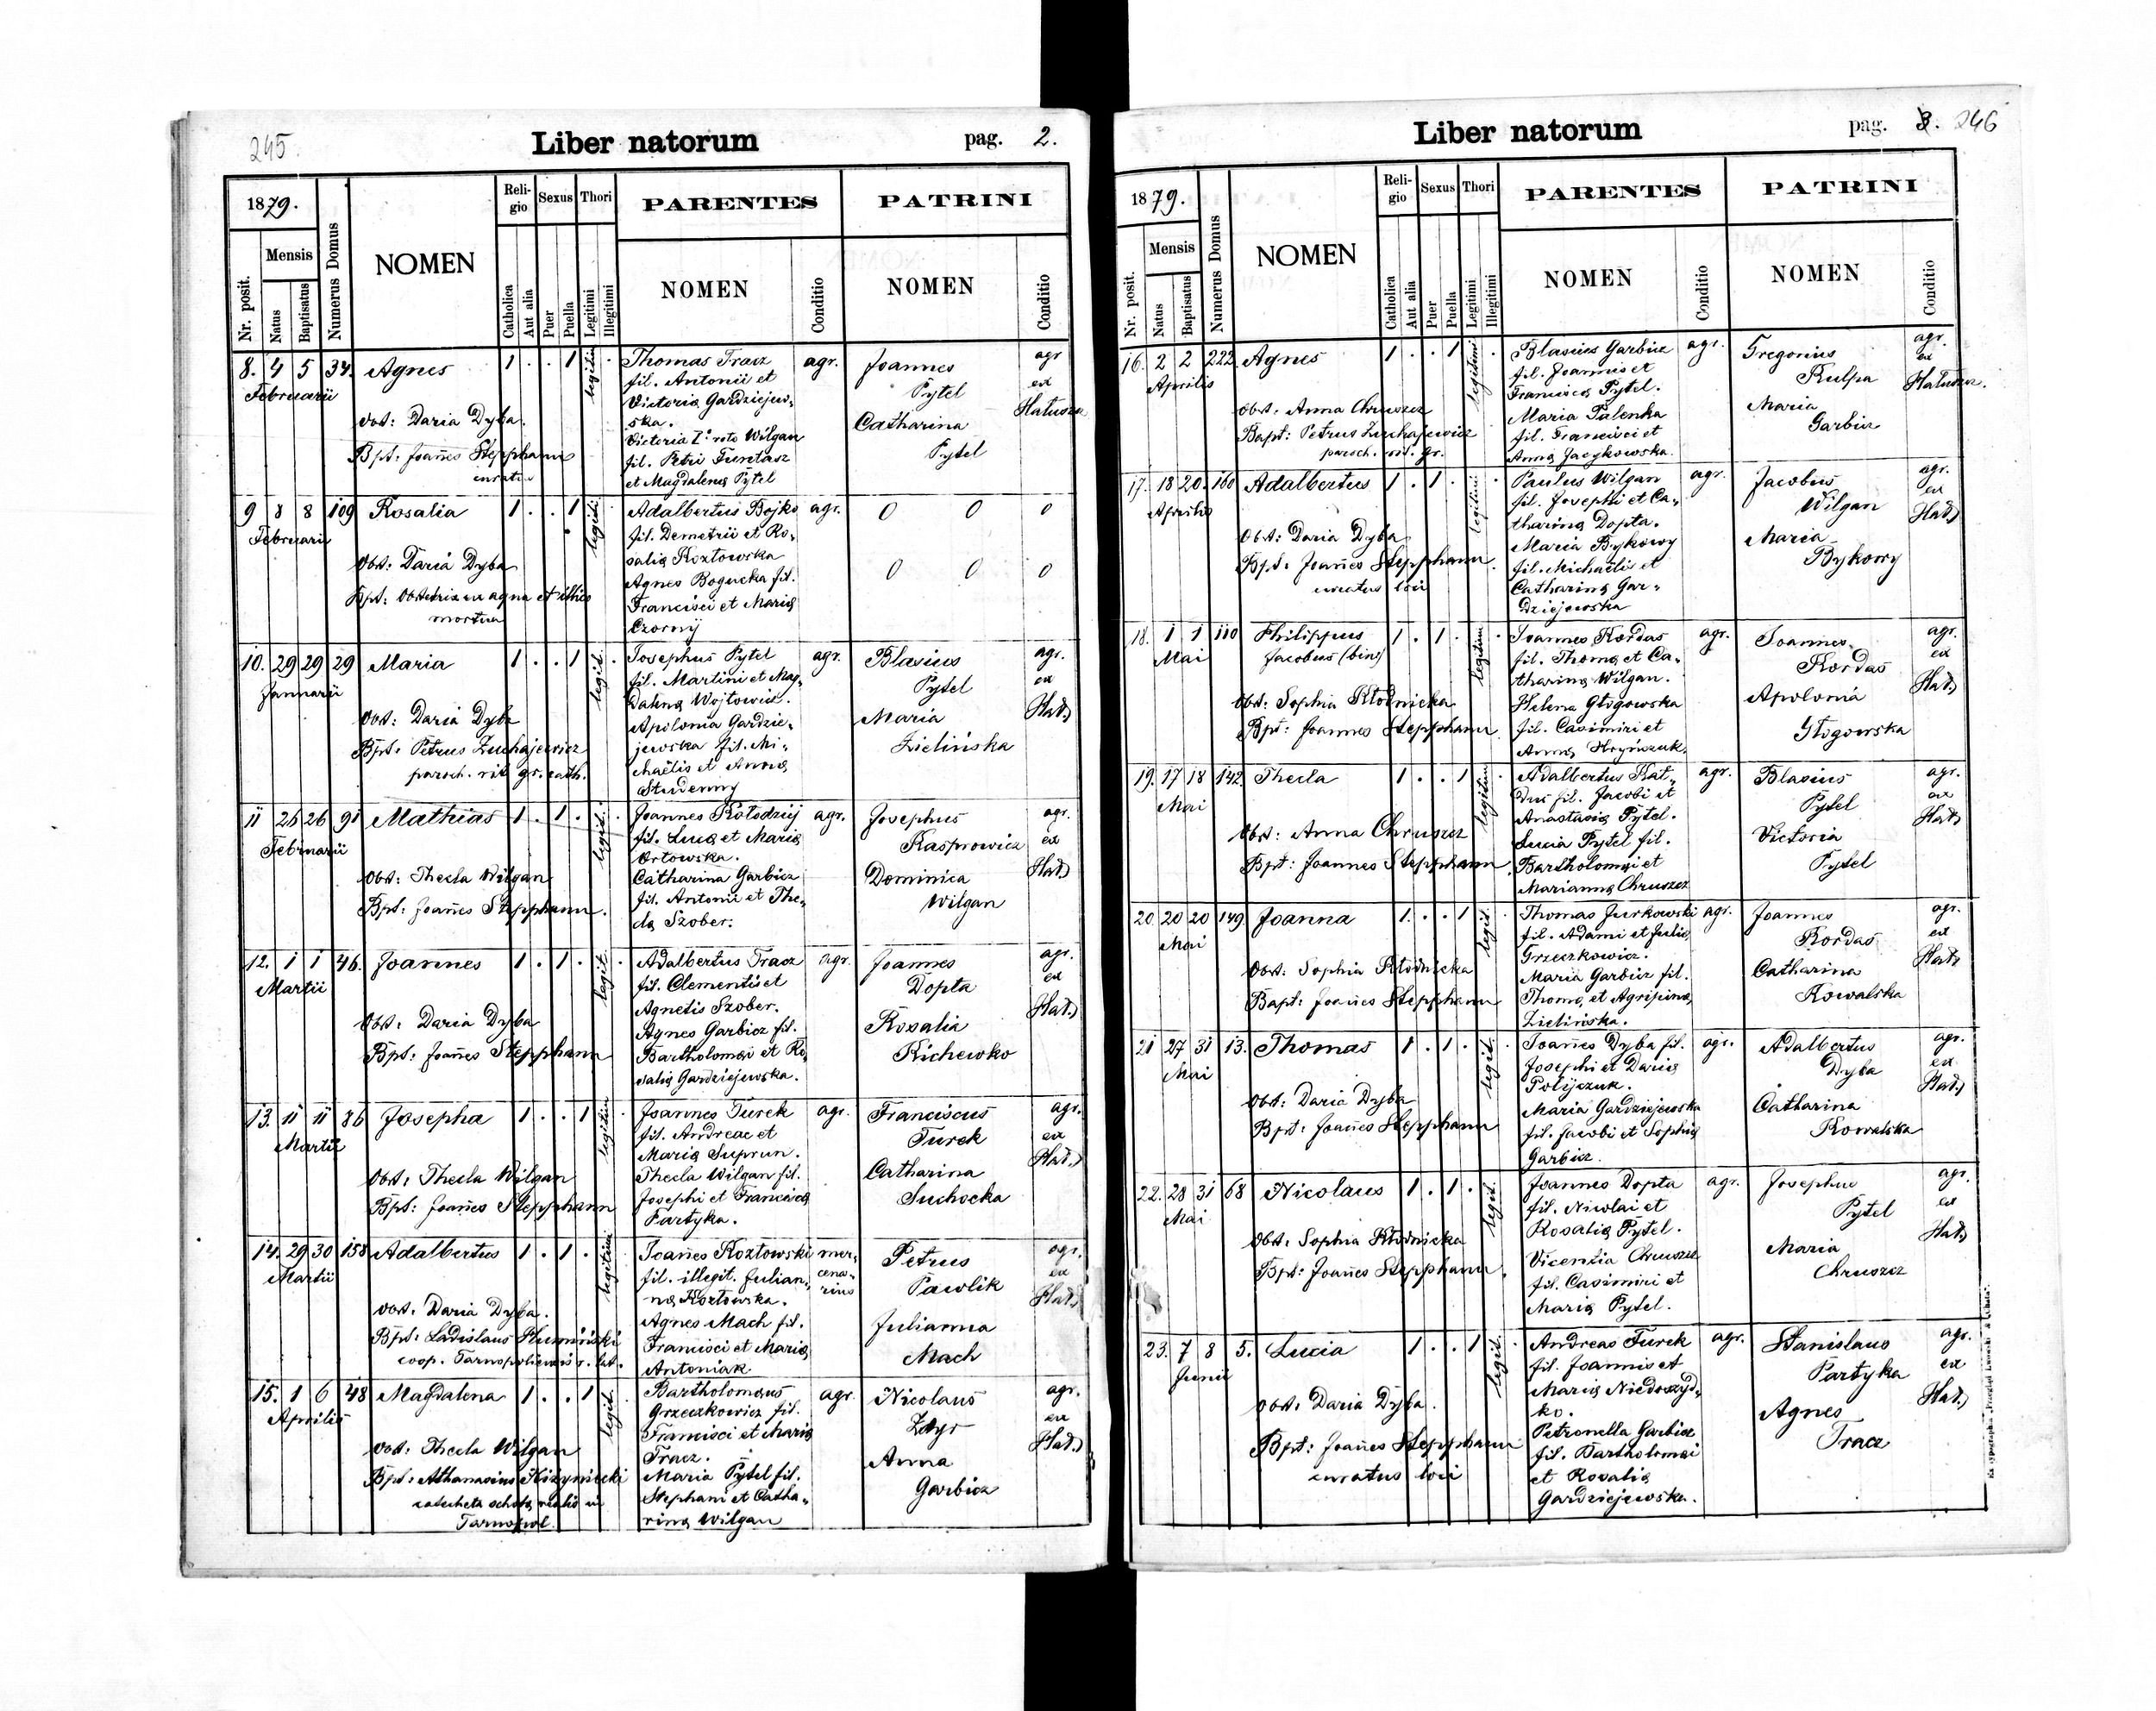 245.
Liber natorum
pag. 2.
1879.
Nr. posit.
Mensis
Natus
Baptisatus
Numerus Domus
NOMEN
Reli-
gio
Catholica
Aut alia
Sexus
Puer
Puella
Thori
Legitimi
Illegitimi
PARENTES
NOMEN
Conditio
PATRINI
NOMEN
Conditio
8. 4 5 34. Agnes 1 . . 1 legitim .
Februarii
Obst: Daria Dyba.
Bpt: Joanes Stepphann
curatus
Thomas Tracz
fil. Antonii et
Victoria Gardziejew-
ska.
Victoria I° voto Wilgan
fil. Petri Funtasz
et Magdalena Pytel
agr.
Joannes
Pytel
Catharina
Pytel
agr
ex
Hatuszcz
9 8 8 109 Rosalia 1 . . 1 legiti .
Februarii
Obst: Daria Dyba
Bpt: Obstetrix ex aqua et illico
mortua
Adalbertus Bojko
fil. Demetrii et Ro-
salia Kozłowska
Agnes Bogucka fil.
Francisci et Maria
Czornij
agr.
0 0 0
0 0 0
10. 29 29 29 Maria 1 . . 1 legit. .
Januarii
Obst: Daria Dyba
Bpt: Petrus Zuchajewicz
paroch. rit. gr. cath.
Josephus Pytel
fil. Martini et Mag-
dalena Wojtowicz.
Apolonia Gardzie-
jewska fil. Mi-
chaëlis et Anna
Studenny
agr.
Blasius
Pytel
Maria
Zielińska
agr.
ex
Hat.
11 26 26 91 Mathias 1 . 1 . legit. .
Februarii
Obst: Thecla Wilgan
Bpt: Joanes Stepphann.
Joannes Kołodzij
fil. Luca et Maria
Orłowska.
Catharina Garbicz
fil. Antonii et The-
cla Szober.
agr.
Josephus
Kasprowicz
Dominica
Wilgan
agr.
ex
Hat.
12. 1 1 46. Joannes 1 . 1 . legit. .
Martii
Obst: Daria Dyba
Bpt: Joanes Stepphann
Adalbertus Tracz
fil. Clementis et
Agnetis Szober.
Agnes Garbicz fil.
Bartholomæi et Ro-
salia Gardziejewska.
agr.
Joannes
Dopta
Rosalia
Kichewko
agr.
ex
Hat.
13. 11 11 86 Josepha 1 . . 1 legitim .
Martii
Obst: Thecla Wilgan
Bpt: Joanes Stepphann
Joannes Turek
fil. Andreae et
Maria Suprun.
Thecla Wilgan fil.
Josephi et Francisca
Partyka.
agr.
Franciscus
Turek
Catharina
Suchocka
agr.
ex
Hat.
14. 29 30 158 Adalbertus 1 . 1 . legitimi .
Martii
Obst: Daria Dyba.
Bpt: Ladislaus
coop. Tarnopoliensis r. lat.
Joanes Kozłowski
fil. illegit. Julian-
na Kozłowska.
Agnes Mach fil.
Francisci et Maria
Antoniak
mer-
cena-
rius
Petrus
Pawlik
Julianna
Mach
agr.
ex
Hat.
15. 1 6 48 Magdalena 1 . . 1 legit. .
Aprilis
Obst: Thecla Wilgan
Bpt: Athanasius
catecheta schola realis in
Tarnopol.
Bartholomæus
Grzeczkowicz fil.
Francisci et Maria
Tracz.
Maria Pytel fil.
Stephani et Catha-
rina Wilgan
agr.
Nicolaus
Anna
Garbicz
agr.
ex
Hat.
Liber natorum
pag. 3. 246
1879.
Nr. posit.
Mensis
Natus
Baptisatus
Numerus Domus
NOMEN
Reli-
gio
Catholica
Aut alia
Sexus
Puer
Puella
Thori
Legitimi
Illegitimi
PARENTES
NOMEN
Conditio
PATRINI
NOMEN
Conditio
16. 2 2 222. Agnes 1 . . 1 legitimi .
Aprilis
Obst: Anna Chruszcz
Bapt: Petrus Zuchajewicz
paroch. rit. gr.
Blasius Garbicz
fil. Joannis et
Francisca Pytel.
Maria Palenka
fil. Francisci et
Anna Jacykowska.
agr.
Gregorius
Kulpa
Maria
Garbicz
agr.
ex
Hatuszcz.
17. 18 20. 160 Adalbertus 1 . 1 . legitimi .
Aprilis
Obst: Daria Dyba
Bpt: Joanes Stepphann.
curatus loci
Paulus Wilgan
fil. Josephi et Ca-
tharina Dopta.
Maria Bykowy
fil. Michaëlis et
Catharina Gar-
dziejewska
agr.
Jacobus
Wilgan
Maria
Bykowy
agr.
ex
Hat.
18. 1 1 110 Philippus 1 . 1 . legitim .
Mai
Jacobus (bin)
Obst: Sophia Kłodnicka
Bpt: Joannes Stepphann.
Joannes Kordas
fil. Thoma et Ca-
tharina Wilgan.
Helena Głogowska
fil. Casimiri et
Anna Hryńczuk.
agr.
Joannes
Kordas
Apolonia
Głogowska
agr.
ex
Hat.
19. 17 18 142. Thecla 1 . . 1 legitim .
Mai
Obst: Anna Chruszcz
Bpt: Joannes Stepphann.
Adalbertus Kat-
fil. Jacobi et
Anastasia Pytel.
Lucia Pytel fil.
Bartholomæi et
Marianna Chruszcz
agr.
Blasius
Pytel
Victoria
Pytel
agr.
ex
Hat.
20. 20 20 149. Joanna 1. . . 1 legit. .
Mai
Obst: Sophia Kłodnicka
Bapt: Joanes Stepphann
Thomas Jurkowski
fil. Adami et Julia
Grzeczkowicz.
Maria Garbicz fil.
Thoma et Agripina
Zielińska.
agr.
Joannes
Kordas
Catharina
Kowalska
agr.
ex
Hat.
21 27 31 13. Thomas 1 . 1 . legit. .
Mai
Obst: Daria Dyba
Bpt: Joanes Stepphann
Joanes Dyba fil.
Josephi et Daria
Polijczuk.
Maria Gardziejewska
fil. Jacobi et Sophia
Garbicz.
agr.
Adalbertus
Dyba
Catharina
Kowalska
agr.
ex
Hat.
22. 28 31 68 Nicolaus 1 . 1 . legit. .
Mai
Obst: Sophia Kłodnicka
Bpt: Joanes Stepphann.
Joannes Dopta
fil. Nicolai et
Rosalia Pytel.
Vicentia Chruszcz
fil. Casimiri et
Maria Pytel.
agr.
Josephus
Pytel
Maria
Chruszcz
agr.
ex
Hat.
23. 7 8 5. Lucia 1 . . 1 legit. .
Junii
Obst: Daria Dyba.
Bpt: Joanes Stepphann
curatus loci
Andreas Turek
fil. Joannis et
Maria Niedoszyd-
ko.
Petronella Garbicz
fil. Bartholomæi
et Rosalia
Gardziejewska.
agr.
Stanislaus
Partyka
Agnes
Tracz
agr.
ex
Hat.